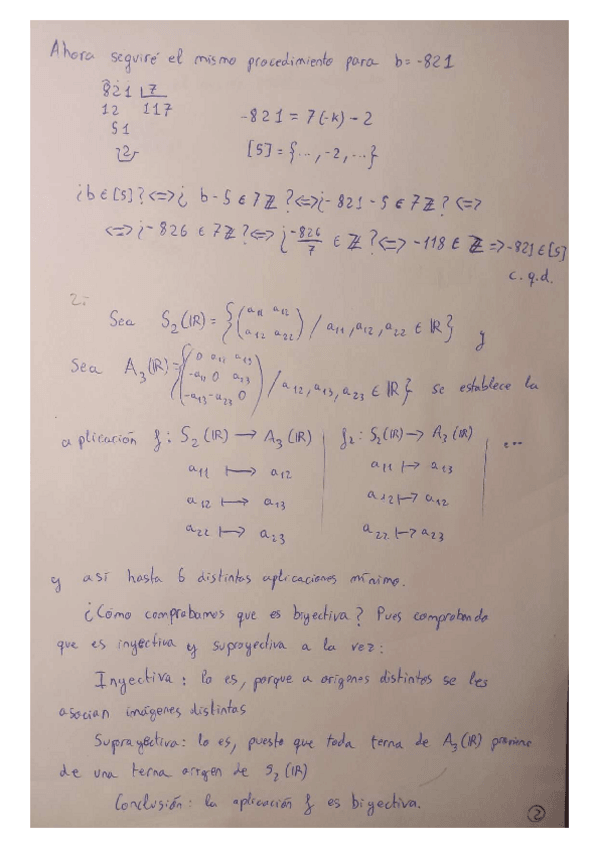 Ahora seguiré el mismo procedimiento para b=-821
821 | 7
12 117
51
2
-821 = 7(-k) - 2
[5] = {..., -2, ...}
¿b ∈ [5]? <=> ¿ b - 5 ∈ 7ℤ? <=> ¿-821 - 5 ∈ 7ℤ? <=>
<=> ¿-826 ∈ 7ℤ? <=> ¿ -826/7 ∈ ℤ? <=> -118 ∈ ℤ => -821 ∈ [5]
c.q.d.
2.-
Sea S₂(ℝ) = {(a₁₁ a₁₂ / a₁₂ a₂₂) / a₁₁, a₁₂, a₂₂ ∈ ℝ} y
Sea A₃(ℝ) = {(0 a₁₂ a₁₃ / -a₁₂ 0 a₂₃ / -a₁₃ -a₂₃ 0) / a₁₂, a₁₃, a₂₃ ∈ ℝ} se establece la
aplicación f: S₂(ℝ) → A₃(ℝ) | f₂: S₂(ℝ) → A₃(ℝ) | ...
a₁₁ ↦ a₁₂ | a₁₁ ↦ a₁₃
a₁₂ ↦ a₁₃ | a₁₂ ↦ a₁₂
a₂₂ ↦ a₂₃ | a₂₂ ↦ a₂₃
y así hasta 6 distintas aplicaciones mínimo.
¿Cómo comprobamos que es biyectiva? Pues comprobando
que es inyectiva y suprayectiva a la vez:
Inyectiva: lo es, porque a orígenes distintos se les
asocian imágenes distintas
Suprayectiva: lo es, puesto que toda terna de A₃(ℝ) proviene
de una terna origen de S₂(ℝ)
Conclusión: la aplicación f es biyectiva.
2